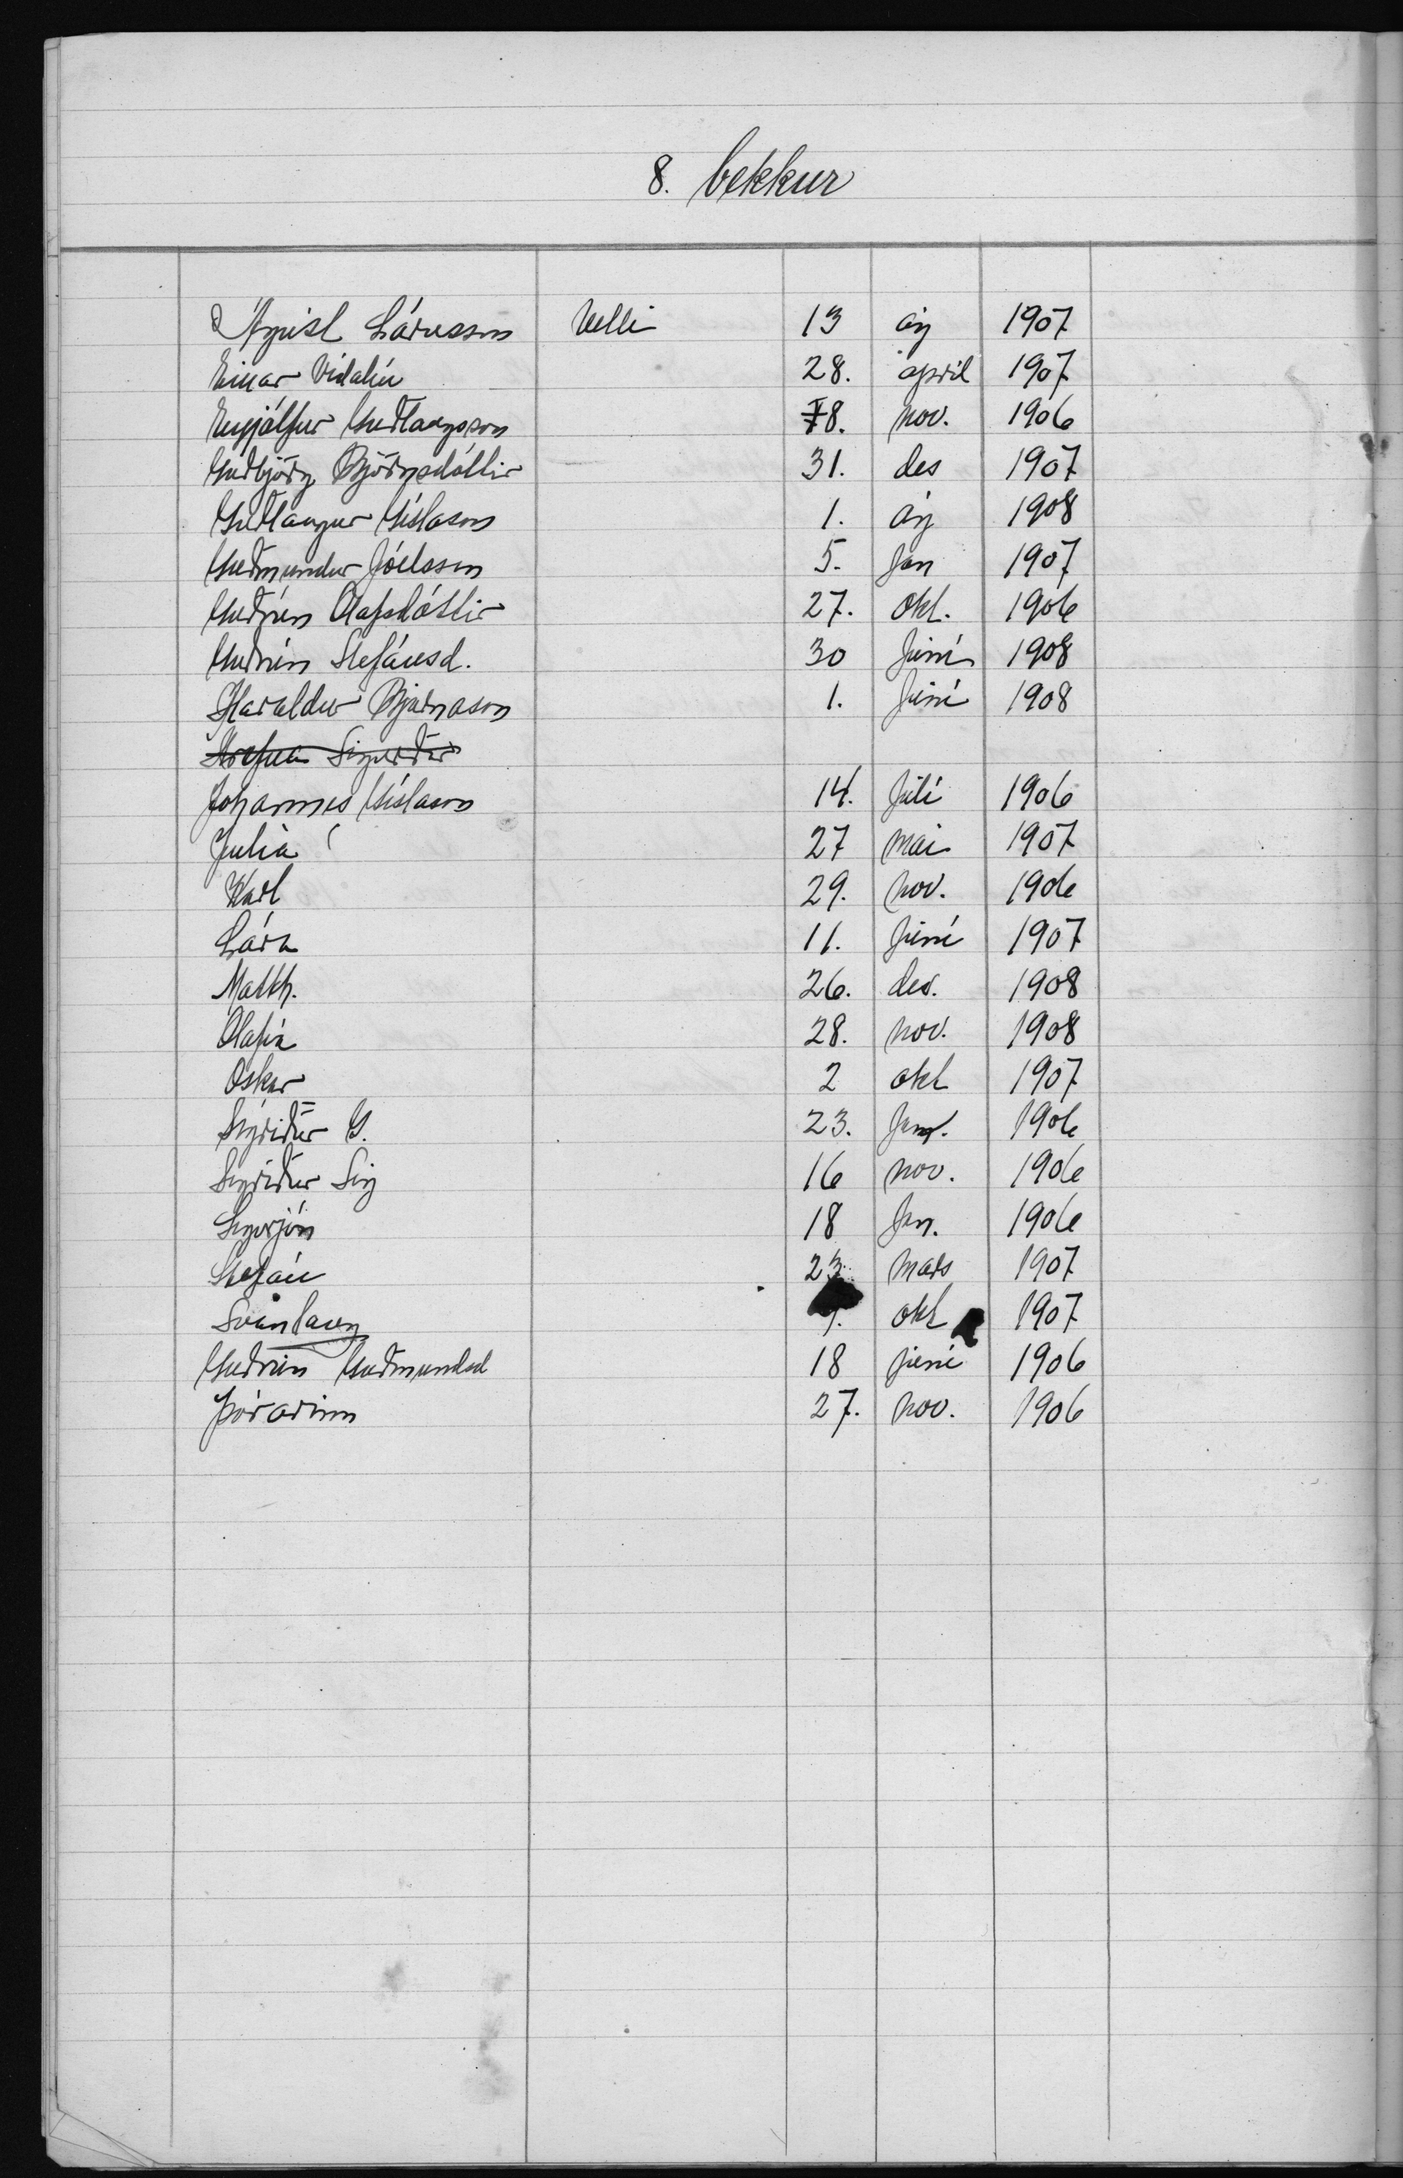 8. bekkur
Ágúst Lárusson Velli 13 ág 1907
Einar Vídalín 28. april 1907
Eyjólfur Guðlaugsson 8. nov. 1906
Guðbjörg Björnsdóttir 31. des 1907
Guðlaugur Gíslason 1. ág 1908
Guðmundur Jóelsson 5. Jan 1907
Guðrún Ólafsdóttir 27. Okt. 1906
Guðrún Stefánsd. 30 Júní 1908
Haraldur Bjarnason 1. Júní 1908
Sigurðar
Jóhannes Gíslason 14. Júlí 1906
Júlía 27 mai 1907
Karl 29. nov. 1906
Lára 11. Júní 1907
Matth. 26. des. 1908
Ólafía 28. nov. 1908
Óskar 2 okt 1907
Sigríður G. 23. Jan. 1906
Sigríður Sig 16 nov. 1906
Sigurjón 18 Jan. 1906
Stefán 23. mars 1907
Sveinlaug okt 1907
Guðrún Guðmundsd 18 júní 1906
Þórarinn 27. nov. 1906